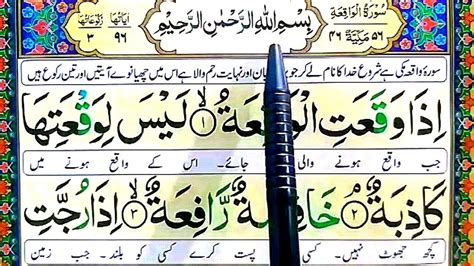 سُورَةُ الْوَاقِعَةِ
٥٦ مَكِّيَّةٌ ٤٦
بِسْمِ اللهِ الرَّحْمٰنِ الرَّحِيْمِ
اٰيَاتُهَا رُكُوْعَاتُهَا
٩٦ ٣
سورۂ واقعہ مکی ہے شروع خدا کا نام لے کر جو اور نہایت رحم والا ہے اس میں چھیانوے آیتیں اور تین رکوع ہیں
اِذَا وَقَعَتِ الْوَاقِعَةُ ۙ﴿١﴾ لَيْسَ لِوَقْعَتِهَا
جب واقع ہونے والی جائے۔ اس کے واقع ہونے میں
كَاذِبَةٌ ۘ﴿٢﴾ خَافِضَةٌ رَّافِعَةٌ ۙ﴿٣﴾ اِذَا رُجَّتِ
کچھ جھوٹ نہیں۔ کسی پست کرے کسی کو بلند۔ جب زمین